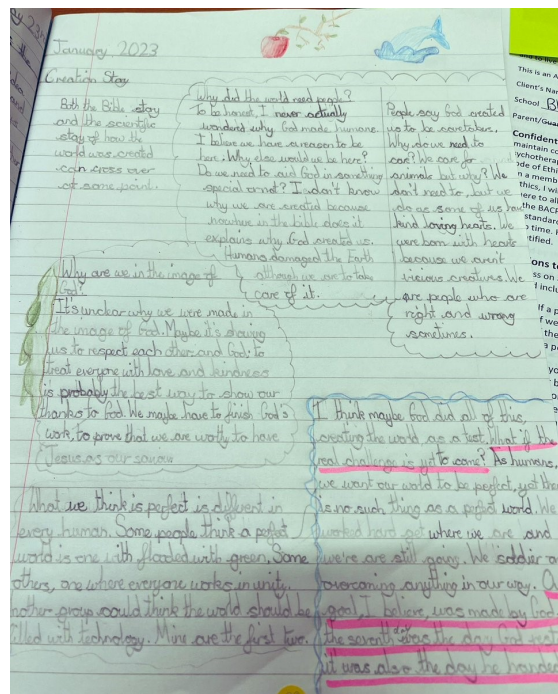 January 2023
Creation Stoy
Both the Bible stoy
and the scientific
stoy of how the
world was created
can cross over
at some point.
Why did the world need people?
To be honest, I never actually
wonderd why God made humans.
I believe we have a reason to be
here. Why else would we be here?
Do we need to aid God in something
special or not? I don't know
why we are created because
nowhere in the bible does it
explains why God created us.
Humans damaged the Earth
although we are to take
care of it.
People say God created
us to be caretakers.
Why do we need to
care? We care for
animals but why? We
don't need to, but we
do as some of us have
kind loving hearts. We
were born with hearts
because we aren't
vicious creatures. We
are people who are
right and wrong
sometimes.
Why are we in the image of
God?
It's unclear why we were made in
the image of God. Maybe it's showing
us to respect each other and God; to
treat everyone with love and kindness
is probably the best way to show our
thanks to God. We maybe have to finish God's
work, to prove that we are worthy to have
Jesus as our saviour
What we think is perfect is different in
every human. Some people think a perfect
world is one with flooded with green. Some
others, one where everyone works in unity.
nother group could think the world should be
filled with technology. Mine are the first two.
I think maybe God did all of this,
creating the world as a test. What if the
real challenge is yet to come? As humans,
we want our world to be perfect, yet the
is no such thing as a perfect world. We
worked hard get where we are and
we're are still going. We soldier o
overcoming anything in our way.
goal, I believe, was made by God
the seventh day was the day God rest
it was also the day he hande
This is an A
Client's Nam
School B
Parent/Guar
Confident
maintain co
ychotherap
ode of Ethi
n a memb
thics, I wi
ere to all
the BACP
standard
o time. H
tified.
ons to
ss on
f inclu
If a p
f we
the
a p